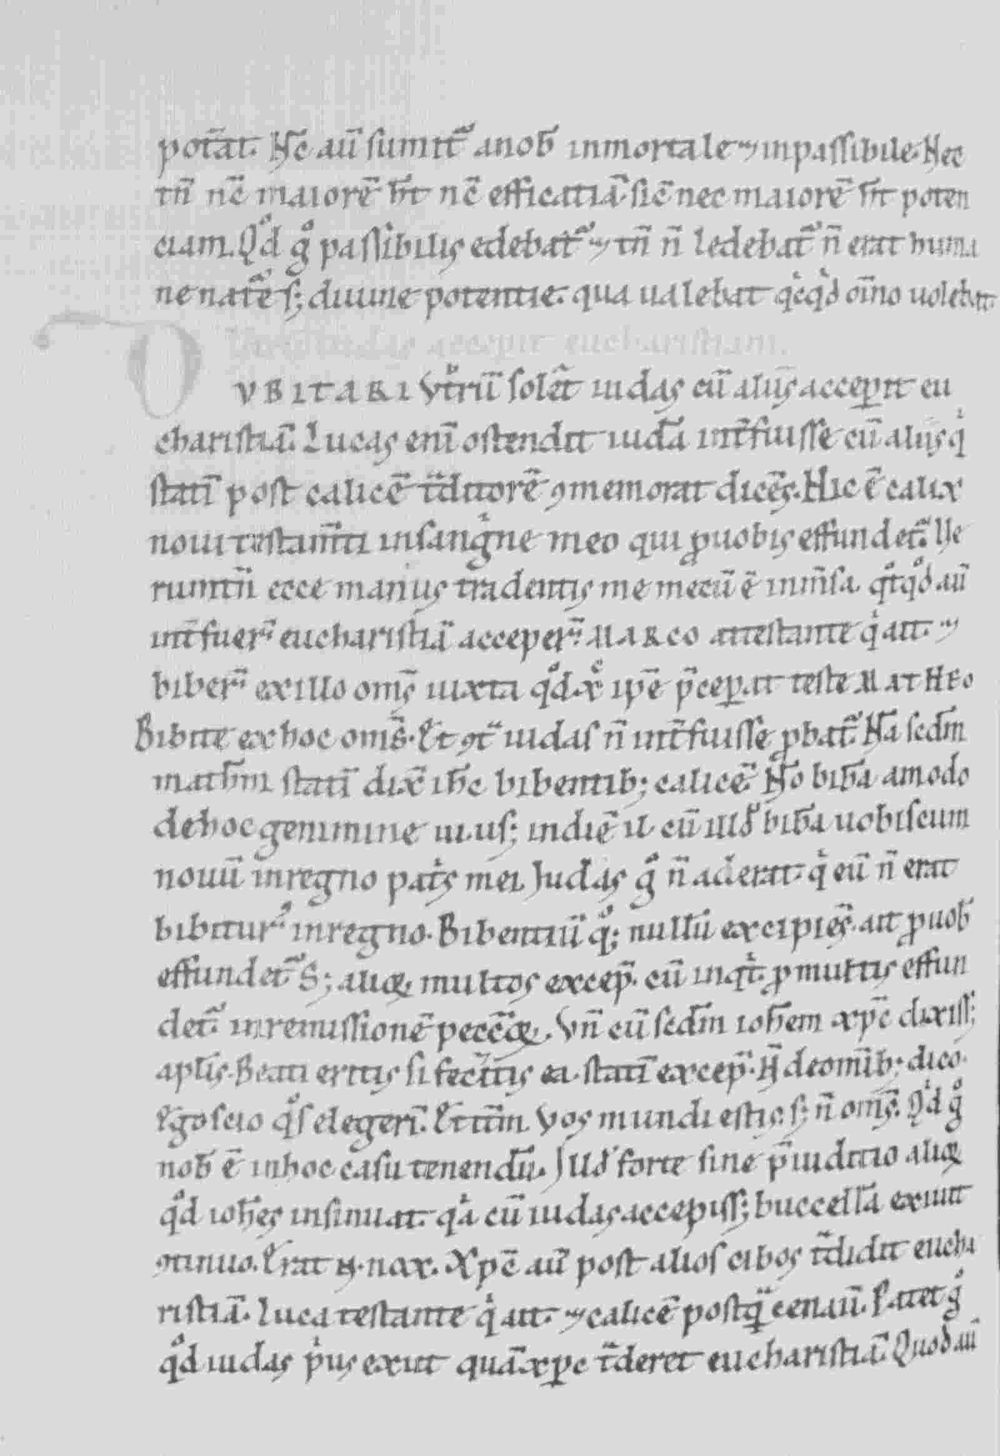 potat̄. H̄c aū sumit᷑ anob̄ inmortale ⁊ inpassibile. Hec
tn̄ nc̄ maiorē h̄t nc̄ efficatiā. sic̄ nec maiorē h̄t poten
ciam. Qͦd gͦ passibilis edebat᷑ ⁊ tn̄ n̄ ledebat᷑ n̄ erat huma
ne nat᷑e s; diuine potentie. qua ualebat qͥcqͥd oīno uolebat.
Utrum iudas accepit eucharistiam.
DVBITARI Vtrū solet̄ iudas cū aliis acceperit eu
charistiā. Lucas enī ostendit iudā int̄fuisse cū aliis qͥ
statī post calicē t̄ditorē ꝯmemorat dicēs. Hic ē calix
noui testam̄ti insangͥne meo qui ꝓuobis effundet᷑. Ve
rumtn̄ ecce manus tradentis me mecū ē inm̄sa. qͦtqͦd aū
int̄fuer̄ eucharistiā acceper̄. MARCO attestante qͥ ait. ⁊
biber̄ exillo om̄s iuxta qͦd xͬ ip̄e p̄ceperat teste MATHEO
Bibite exhoc om̄s. Et ꝯt᷑ iudas n̄ int̄fuisse ꝓbat᷑. Nā scd̄m
math̄m statī dix̄ ih̄c bibentib; calicē. Nō bibā amodo
dehoc genimine uitis usq; indiē illū cū illud bibā uobiscum
nouū inregno pat̄s mei. Judas gͦ n̄ aderat. qͥ cū n̄ erat
bibitur᷒ inregno. Bibentiū qͦq; nullū excipiēs. ait ꝓuob̄
effundet᷑. S; aliꝙ multos excep̄. cū inqt̄. ꝓmultis effun
det᷑ inremissionē pecc̄oꝝ. Vn̄ cū scd̄m ioh̄em xp̄c dixiss;
aplīs. Beati eritis si fec̄itis ea. statī excep̄. N̄ deomīb; dico.
Ego scio qͦs elegerī. Et it̄m. Vos mundi estis. s; n̄ om̄s. Qͥd gͦ
nob̄ ē inhoc casu tenendū. Illud forte sine p̄iuditio alioꝝ
qͦd ioh̄es insinuat. qͣ cū iudas accepiss; buccellā exiuit
ꝯtinuo. Erat aū nox. Xp̄c aū post alios cibos t̄didit eucha
ristiā. Luca testante qͥ ait. ⁊ calicē postqͣ̄ cenauī. Patet gͦ
qͦd iudas pͥus exiit quā xp̄c t̄deret eucharistiā. Quod aū